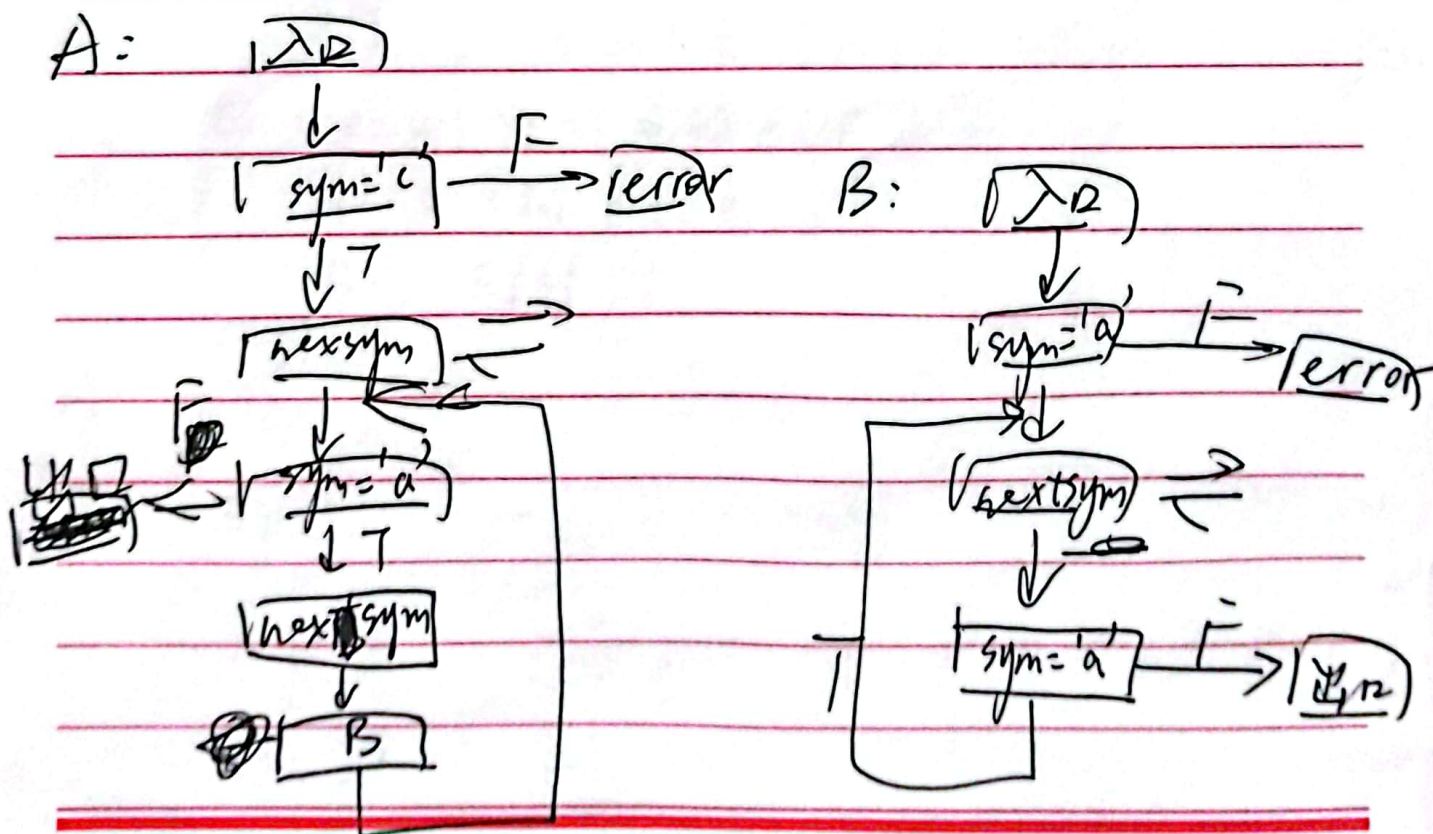 A:
入口
sym='c'
F
error
T
nexsym
F
出口
sym='a'
T
nextsym
B
B:
入口
sym='a'
F
error
nextsym
sym='a'
F
出口
T